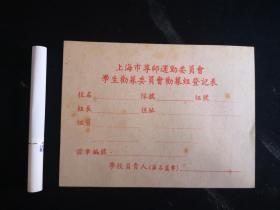 上海市尊師運動委員會
學生勸募委員會勸募組登記表
校名 隊號 組號
組長 住址
組員
證章編號
學校負責人(簽名蓋章)